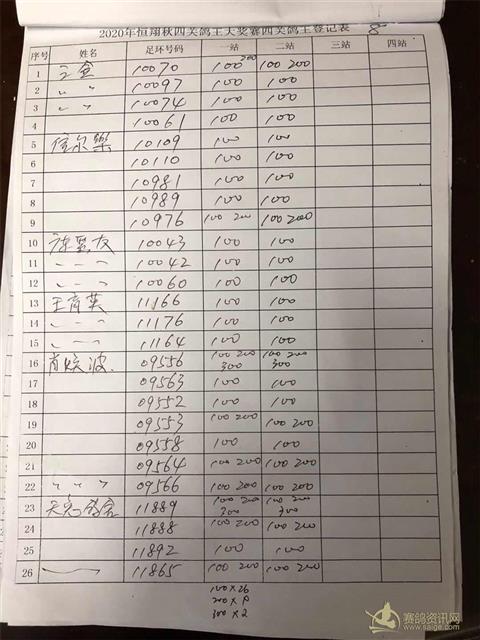 2020年恒翔秋四关鸽王大奖赛四关鸽王登记表 8
序号 姓名 足环号码 一站 二站 三站 四站
1 王鑫 10070 100 200 100 200
2 〃 〃 10097 100 100
3 〃 〃 10074 100 100
4 10061 100 100
5 10109 100 100
6 10110 100 100
7 10981 100 100
8 10989 100 100
9 10976 100 200 100 200
10 10043 100 100
11 〃 〃 〃 10042 100 100
12 〃 〃 〃 10060 100 100
13 王育英 11166 100 100
14 〃 〃 〃 11176 100 100
15 〃 〃 〃 11164 100 100
16 肖焕波 09556 100 200 300 100 200 300
17 09563 100 100
18 09552 100 100
19 09553 100 200 100 200
20 09558 100 100
21 09564 100 200 100 200
22 〃 〃 〃 09566 100 200 100 200
23 11889 100 200 300 100 200 300
24 11888 100 200 100 200
25 11892 100 100
26 11865 100 200 100 200
100×26
200×9
300×2
赛鸽资讯网
www.saige.com